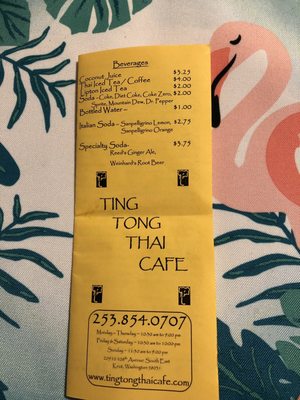 Beverages
Coconut Juice $3.25
Thai Iced Tea / Coffee $4.00
Lipton Iced Tea $2.00
Soda - Coke, Diet Coke, Coke Zero, $2.00
Sprite, Mountain Dew, Dr. Pepper
Bottled Water - $1.00
Italian Soda - Sanpelligrino Lemon, $2.75
Sanpelligrino Orange
Specialty Soda- $3.75
Reed's Ginger Ale,
Weinhard's Root Beer
TING
TONG
THAI
CAFE
253.854.0707
Monday - Thursday - 10:30 am to 9:00 pm
Friday & Saturday - 10:30 am to 10:00 pm
Sunday - 11:30 am to 9:00 pm
Avenue South East
Kent, Washington 98031
www.tingtongthaicafe.com